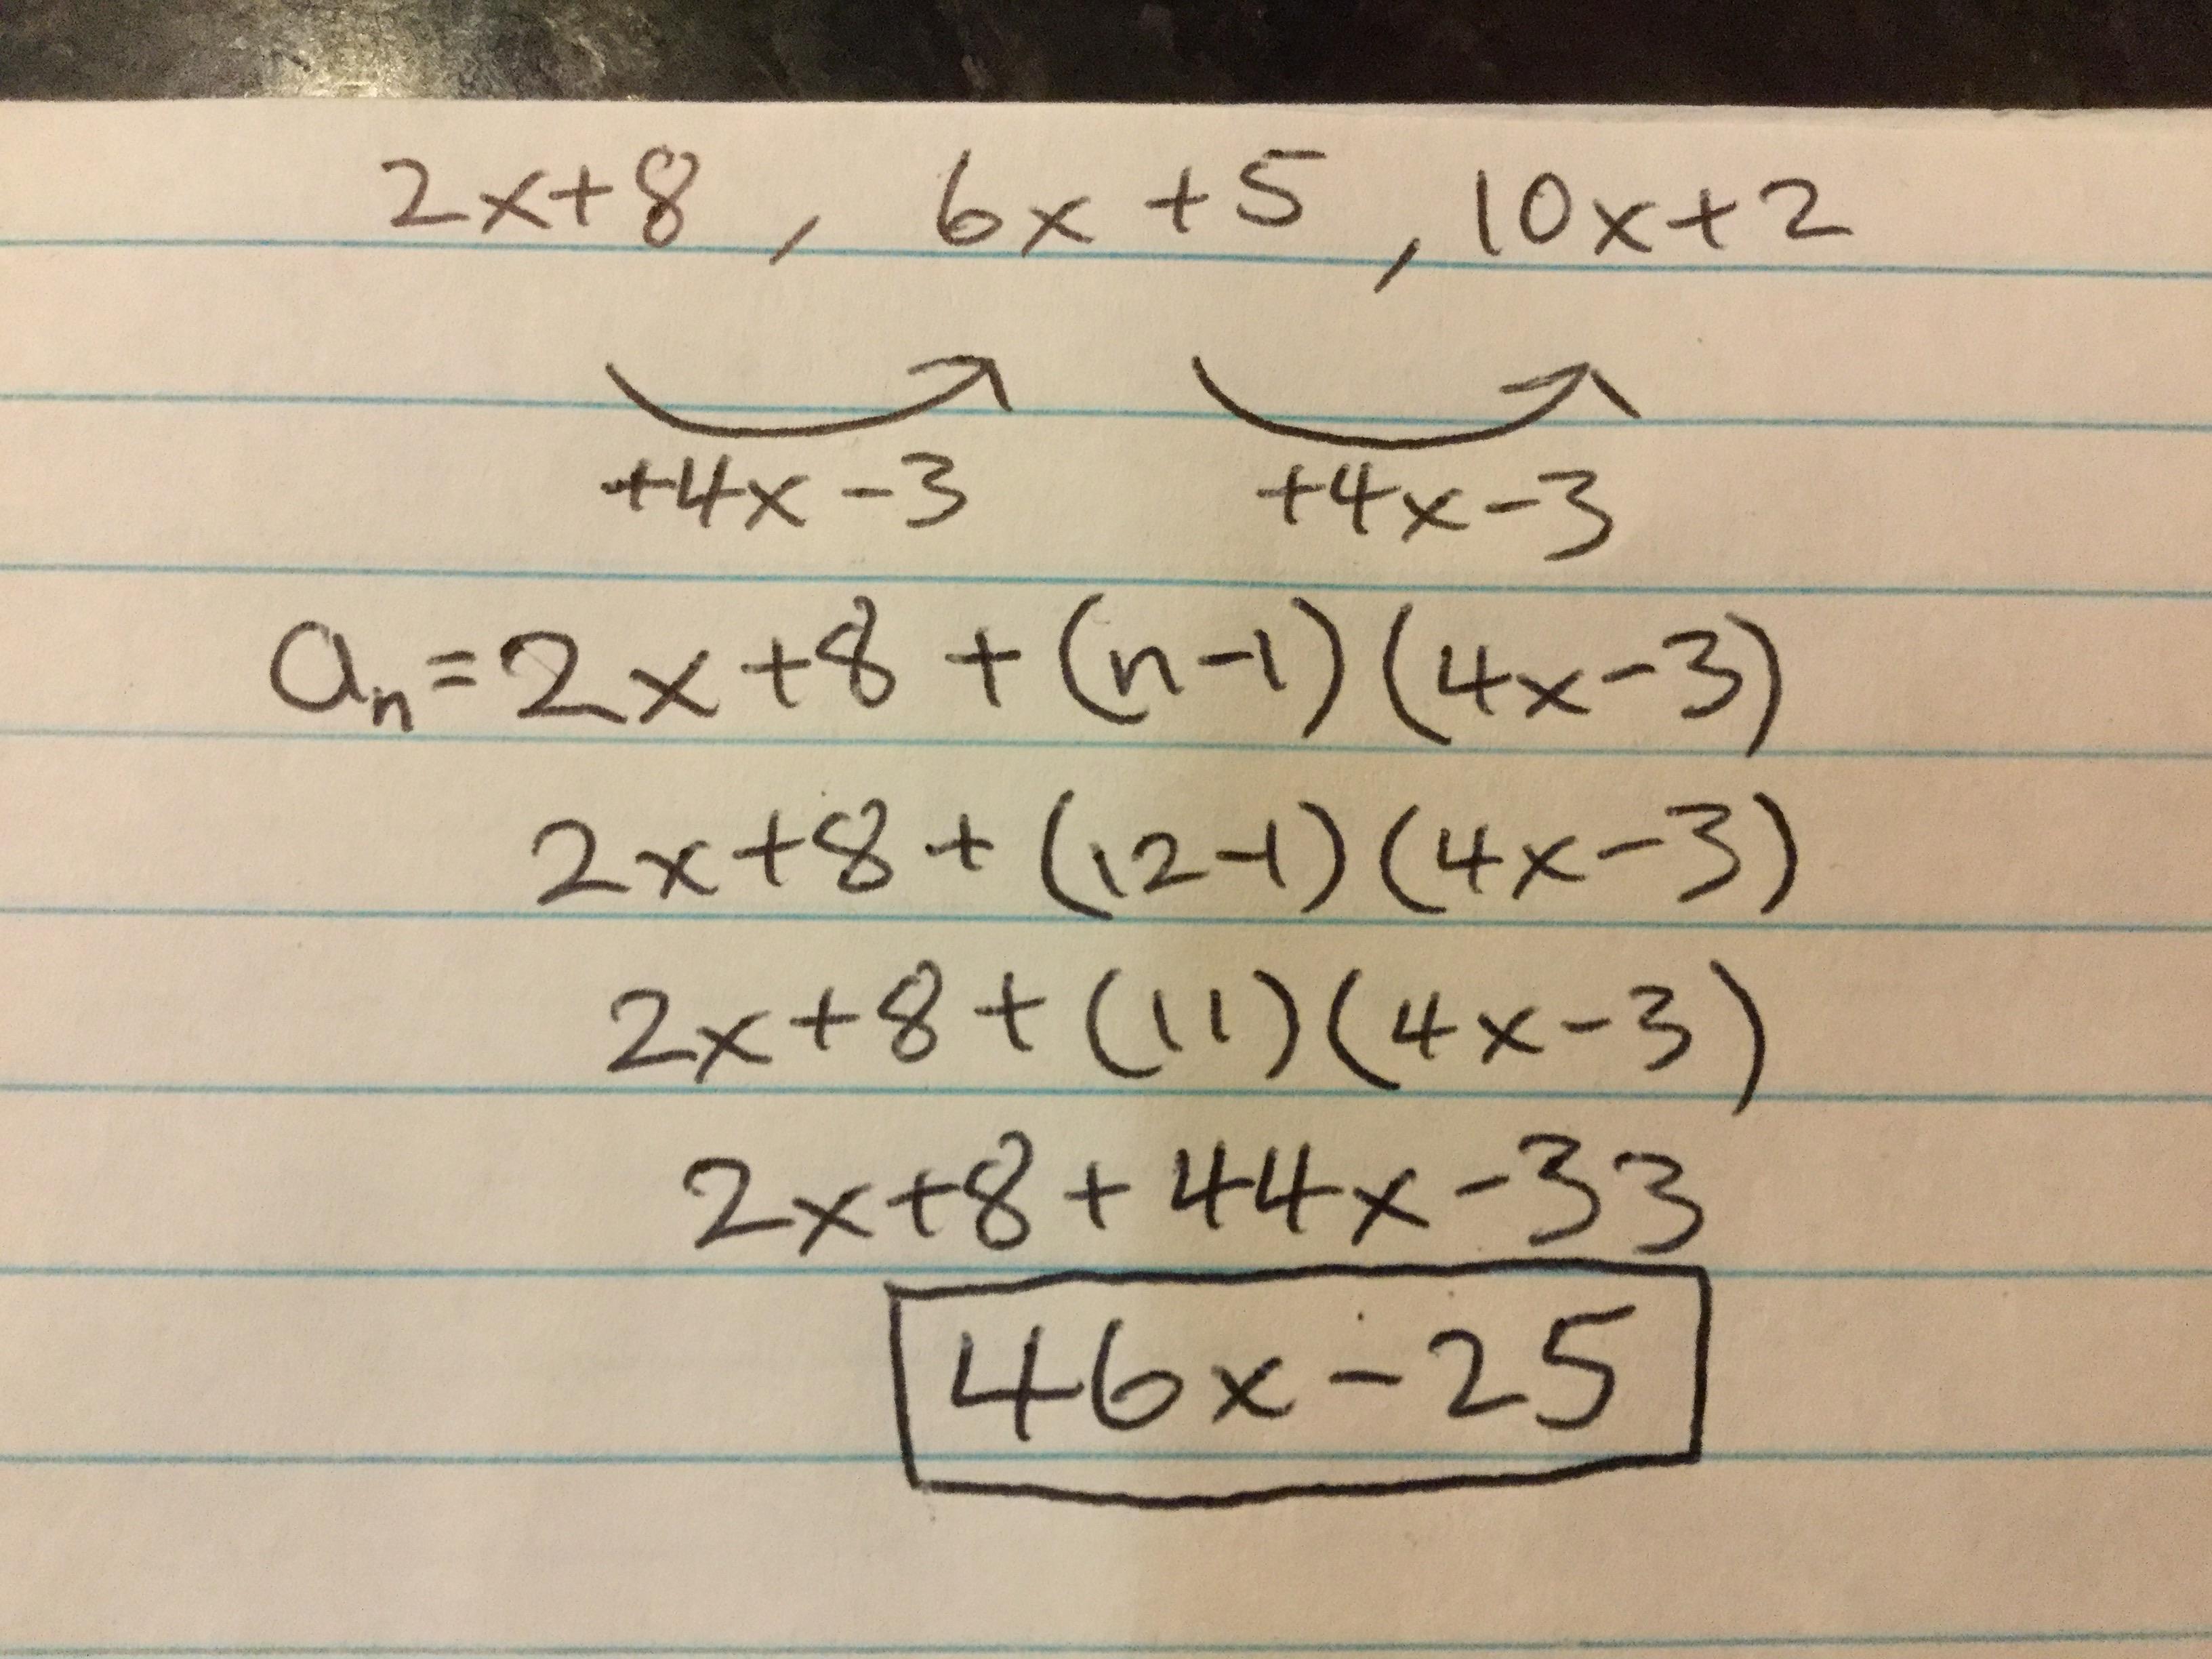 2x+8, 6x+5, 10x+2
+4x-3 +4x-3
aₙ=2x+8+(n-1)(4x-3)
2x+8+(12-1)(4x-3)
2x+8+(11)(4x-3)
2x+8+44x-33
46x-25